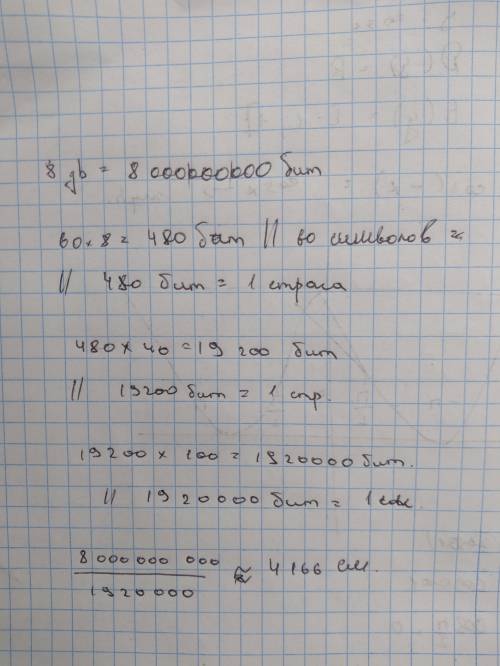 8 gb = 8 000000000 бит
60 × 8 = 480 бит // 60 символов =
// 480 бит = 1 строка
480 × 40 = 19 200 бит
// 19200 бит = 1 стр.
19200 × 100 = 1920000 бит.
// 1920000 бит = 1 см.
8 000000 000
1920000
≈ 4166 см.